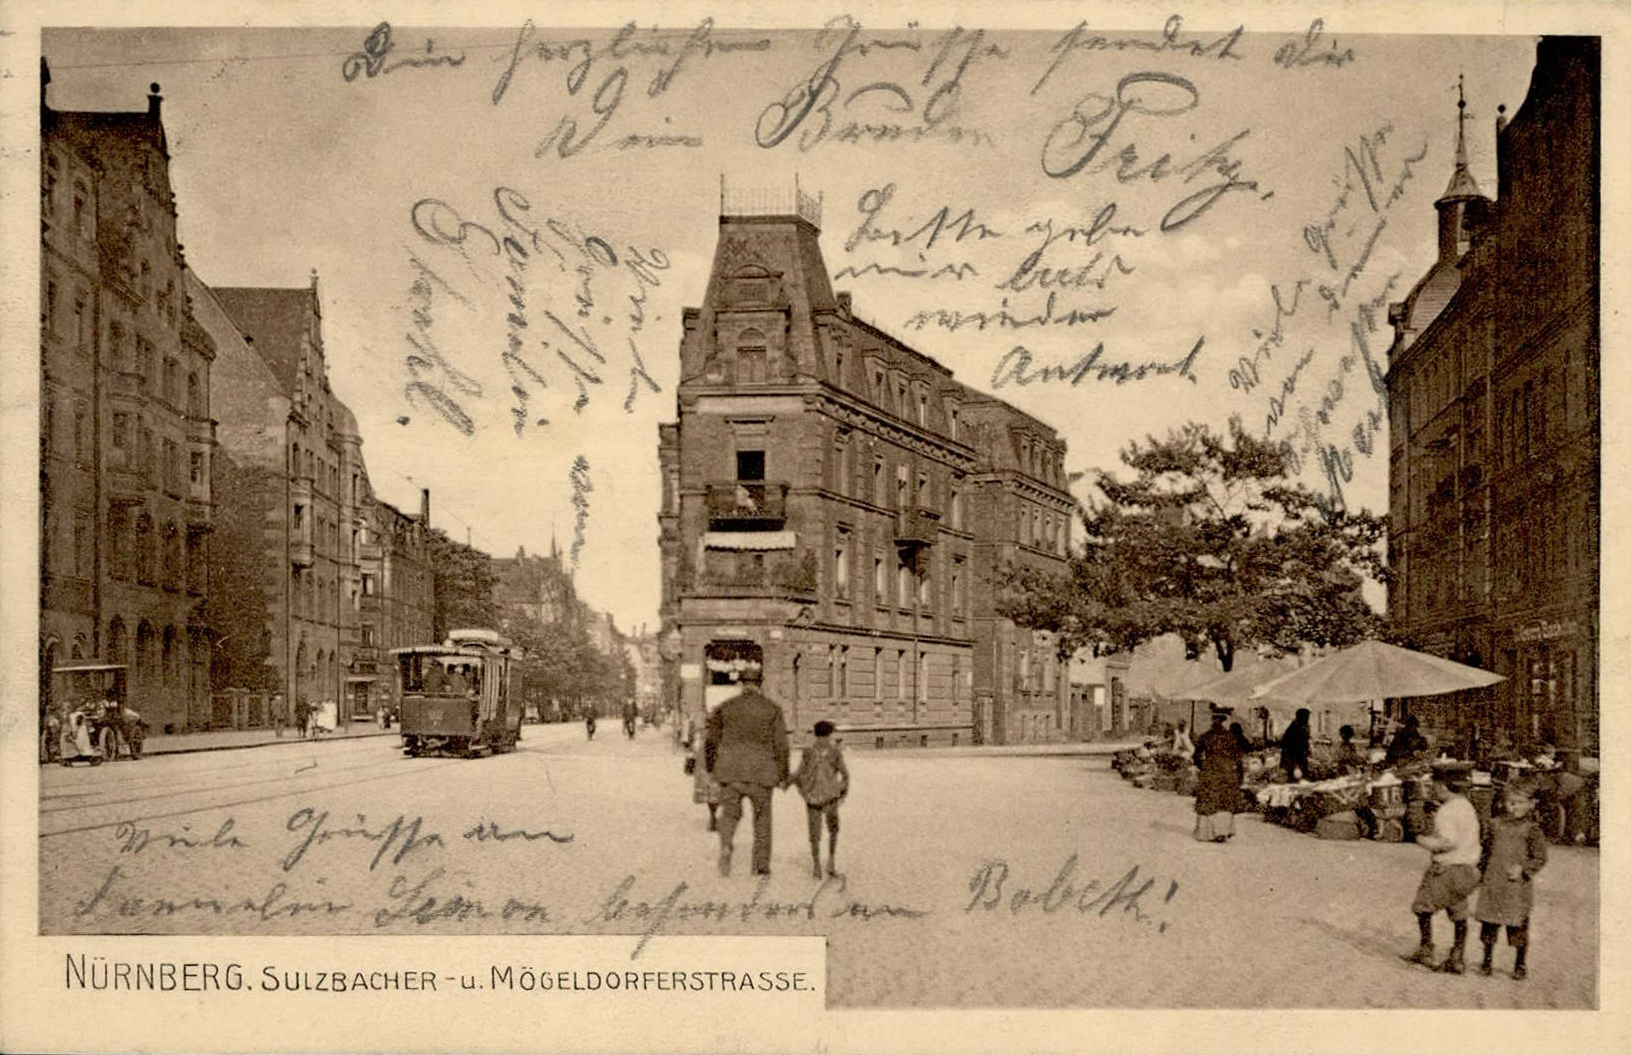 Die herzlichen Grüsse sendet Dir
Dein Bruder Fritz.
Bitte gebe
mir bald
wieder
Antwort.
Viele Grüsse
von deiner
Schwester
Viele
Grüsse
Familie
Viele Grüsse an
Familie Simon besonders an Babeth!
NÜRNBERG. SULZBACHER - u. MÖGELDORFERSTRASSE.